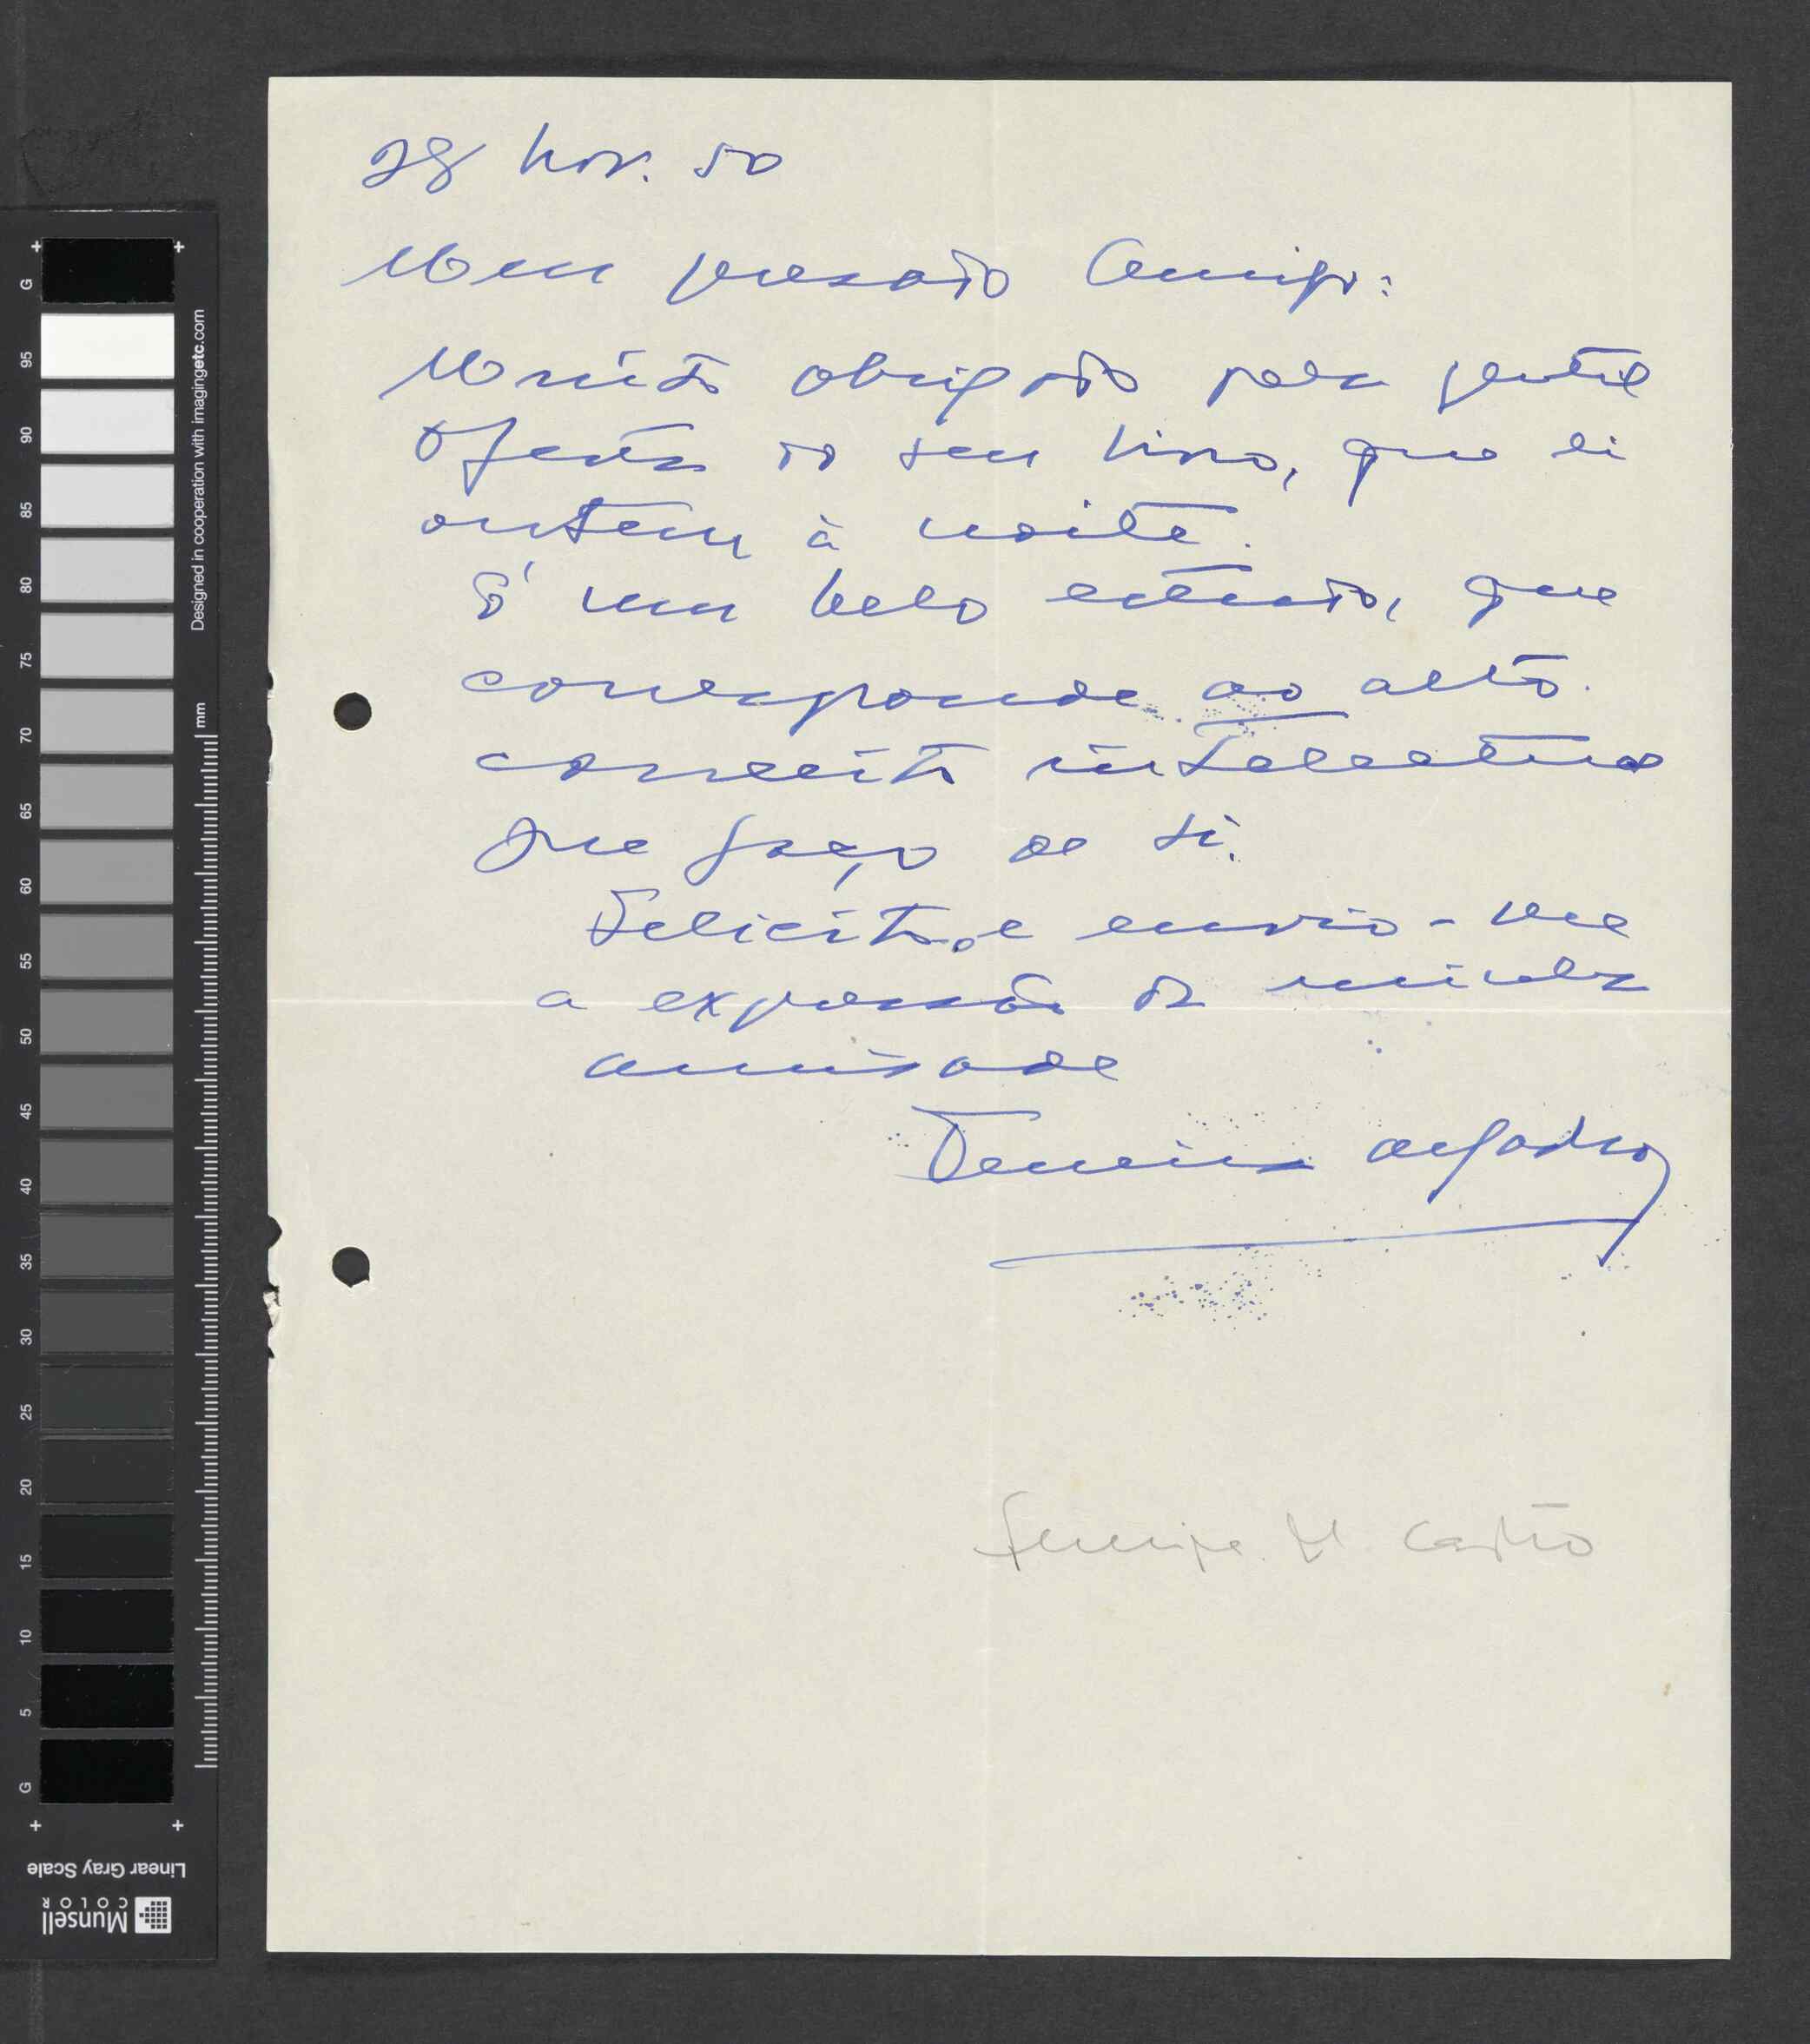 28 Nov. 50
Meu prezado Amigo:
Muito obrigado pela gentil
oferta do seu livro, que li
ontem à noite.
É um belo estudo, que
corresponde ao alto
conceito intelectual
que faço de si.
Felicito-o e envio-lhe
a expressão da minha
amizade
Ferreira de Castro
G
95
90
85
80
75
70
65
60
55
50
45
40
35
30
25
20
15
10
5
G
Designed in cooperation with imagingetc.com
mm
Linear Gray Scale
Munsell
COLOR